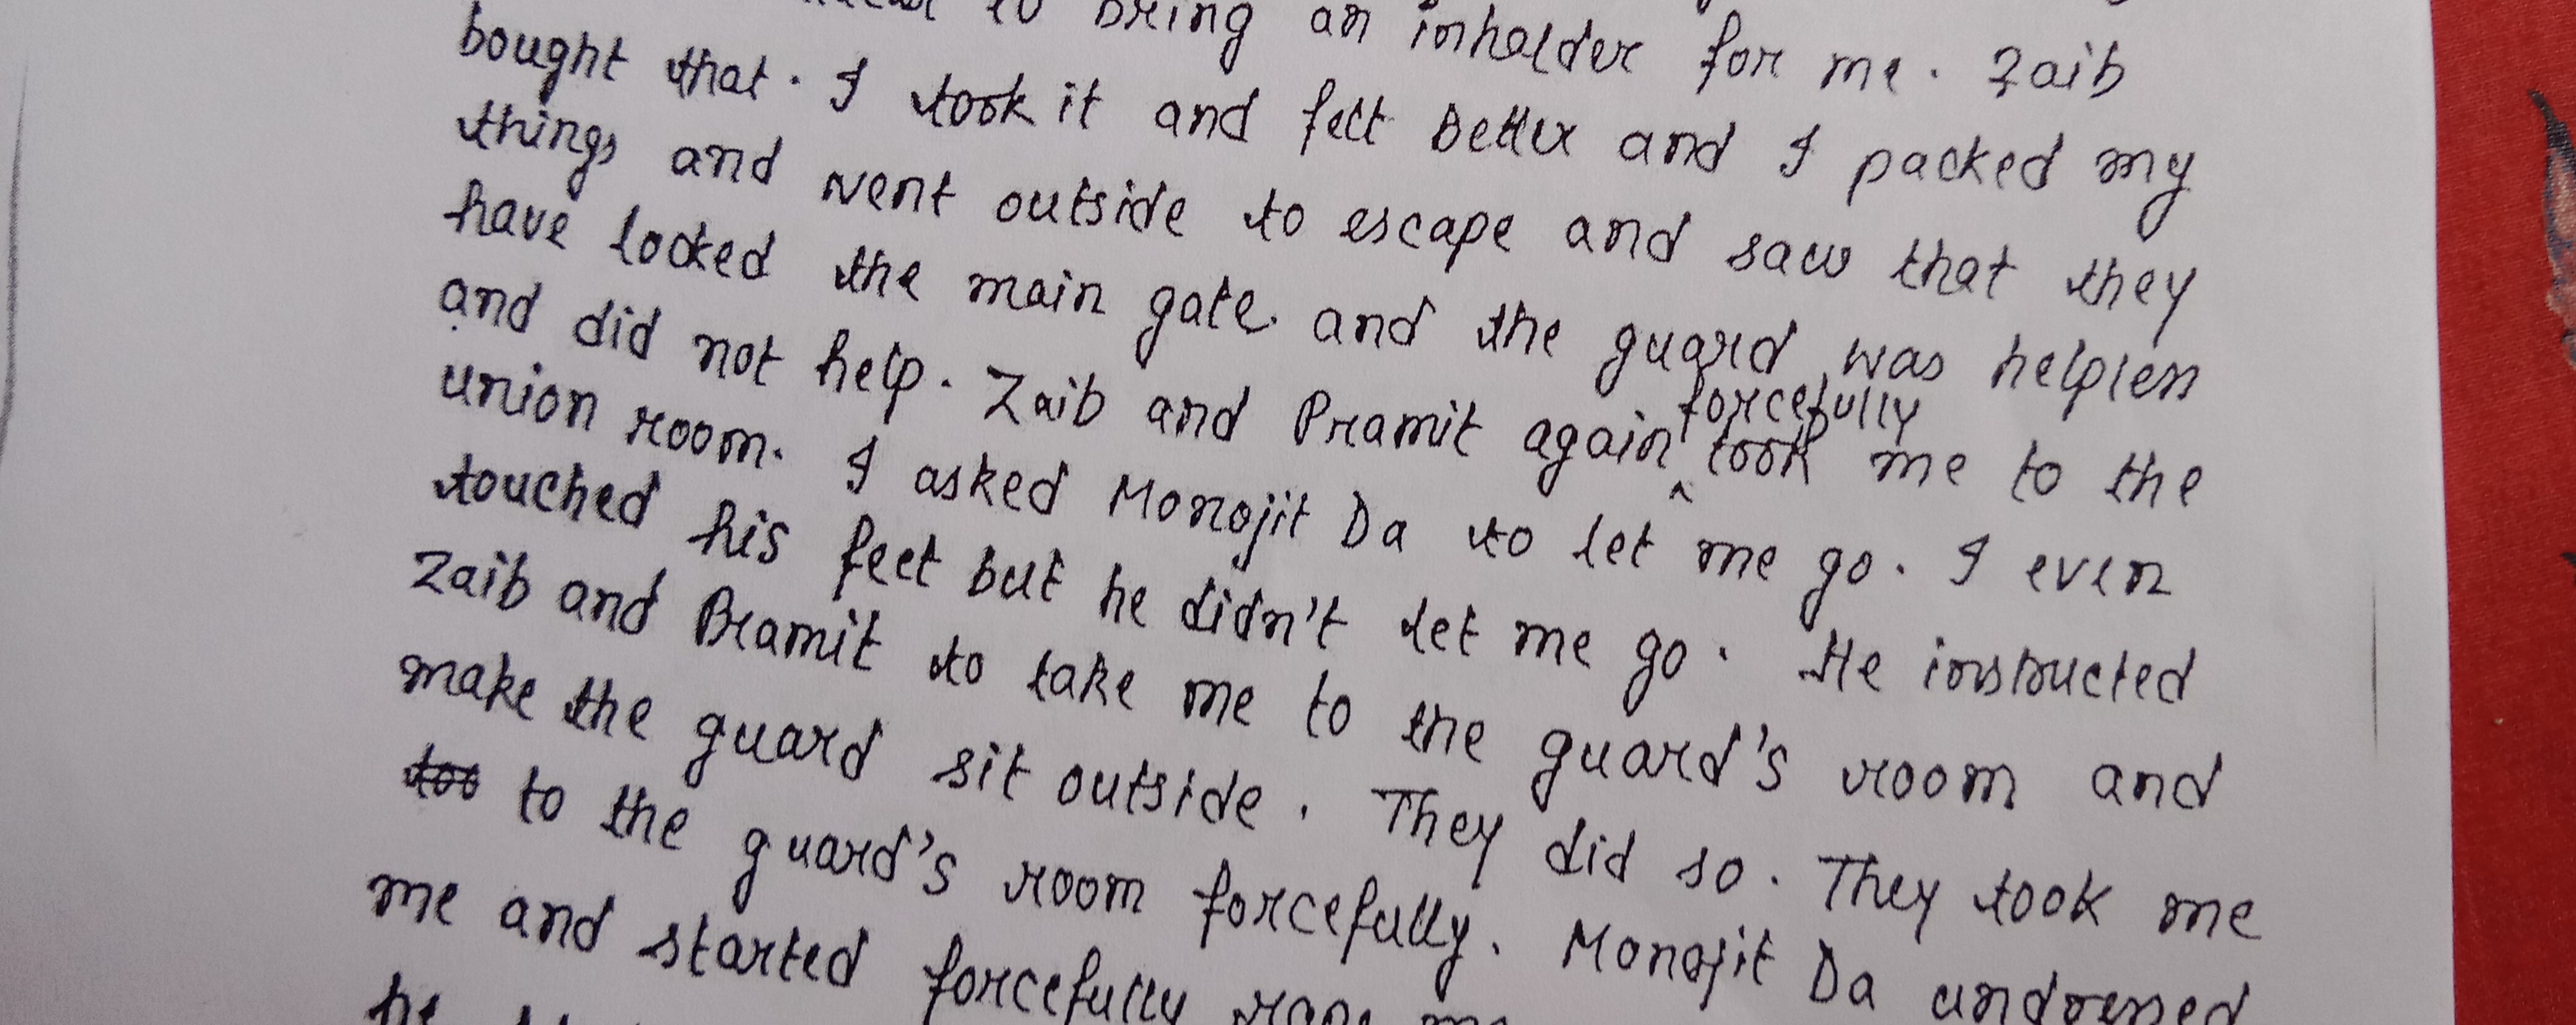 to bring an inhalder for me. Zaib
bought that. I took it and felt better and I packed my
things and went outside to escape and saw that they
have locked the main gate. and the guard was helpless
and did not help. Zaib and Pramit again forcefully took me to the
union room. I asked Monojit Da to let me go. I even
touched his feet but he didn't let me go. He instructed
Zaib and Pramit to take me to the guard's room and
make the guard sit outside. They did so. They took me
to the guard's room forcefully. Monojit Da undressed
me and started forcefully rape me
he